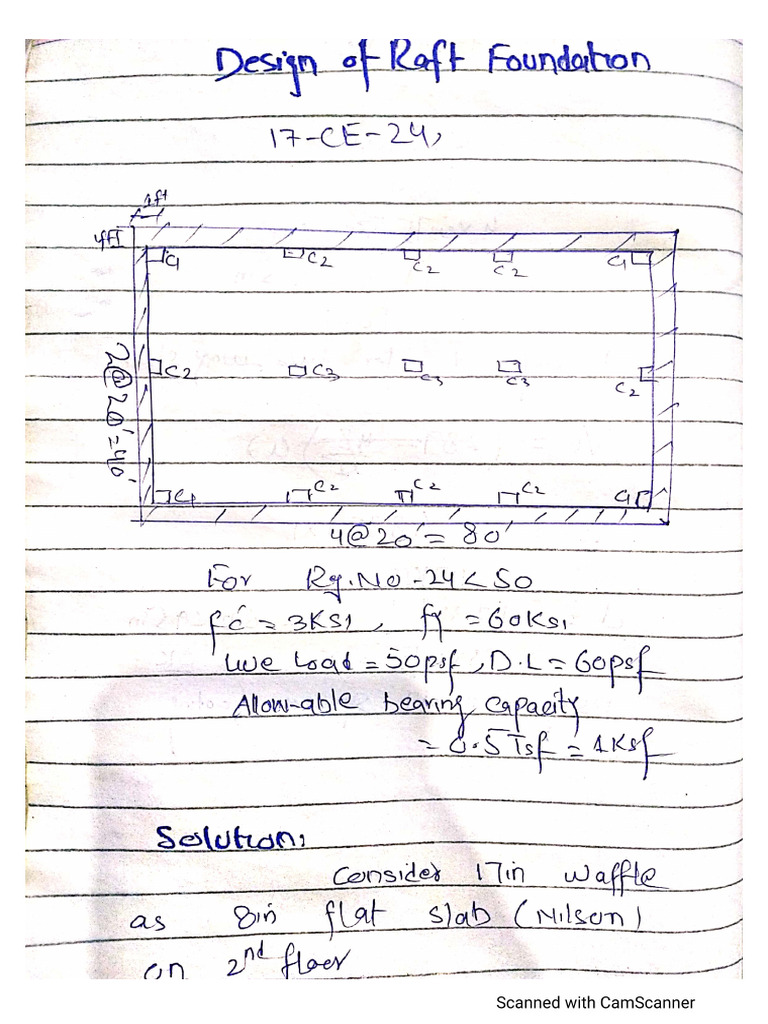 Design of Raft Foundation
17-CE-24,
1ft
4ft
C1 C2 C2 C2 C1
C2 C3 C3 C3 C2
2@20'=40'
C1 C2 C2 C2 C1
4@20'= 80'
For Rg.No -24 < 50
fc' = 3Ksi, fy = 60Ksi
Live Load = 50psf, D.L = 60psf
Allow-able bearing capacity
= 0.5 Tsf = 1Ksf
Solution:
Consider 17in waffle
as 8in flat slab (Nilson)
on 2nd floor
Scanned with CamScanner